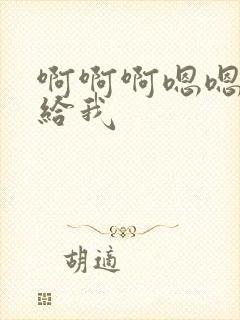 啊啊啊嗯嗯
給我
胡適